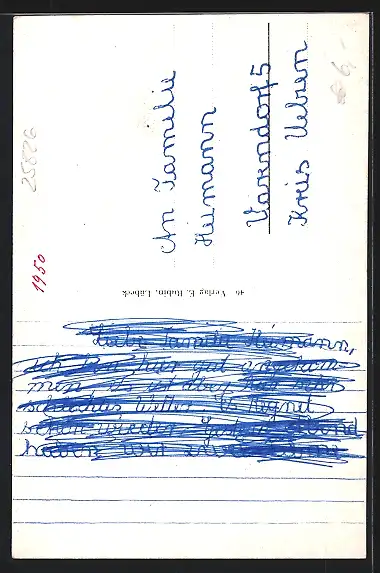 An Familie
Heimann
Varendorf 5
Kreis Uelzen
€ 6,-
25826
1950
46 Verlag E. Rubin, Lübeck
Liebe Familie Heimann,
ich bin hier gut angekom-
men. Es ist aber hier sehr
schlechtes Wetter. Es regnet
schon wieder.
haben wir